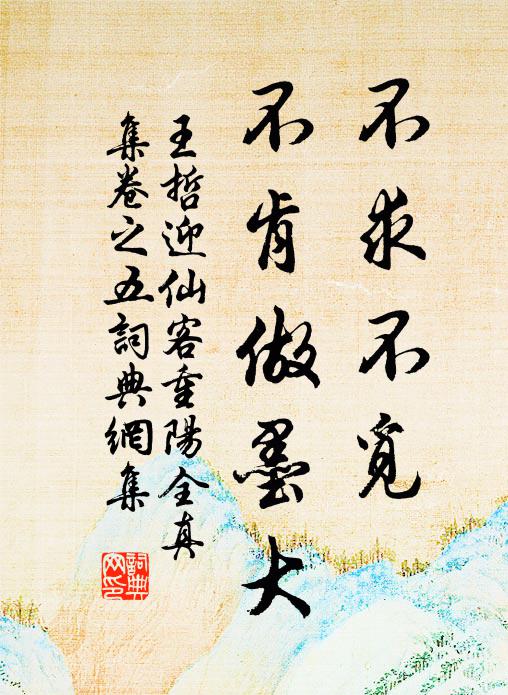 不求不覓
不肯做墨大
王哲迎仙客重陽全真
集卷之五詞典網集
詞典
网印